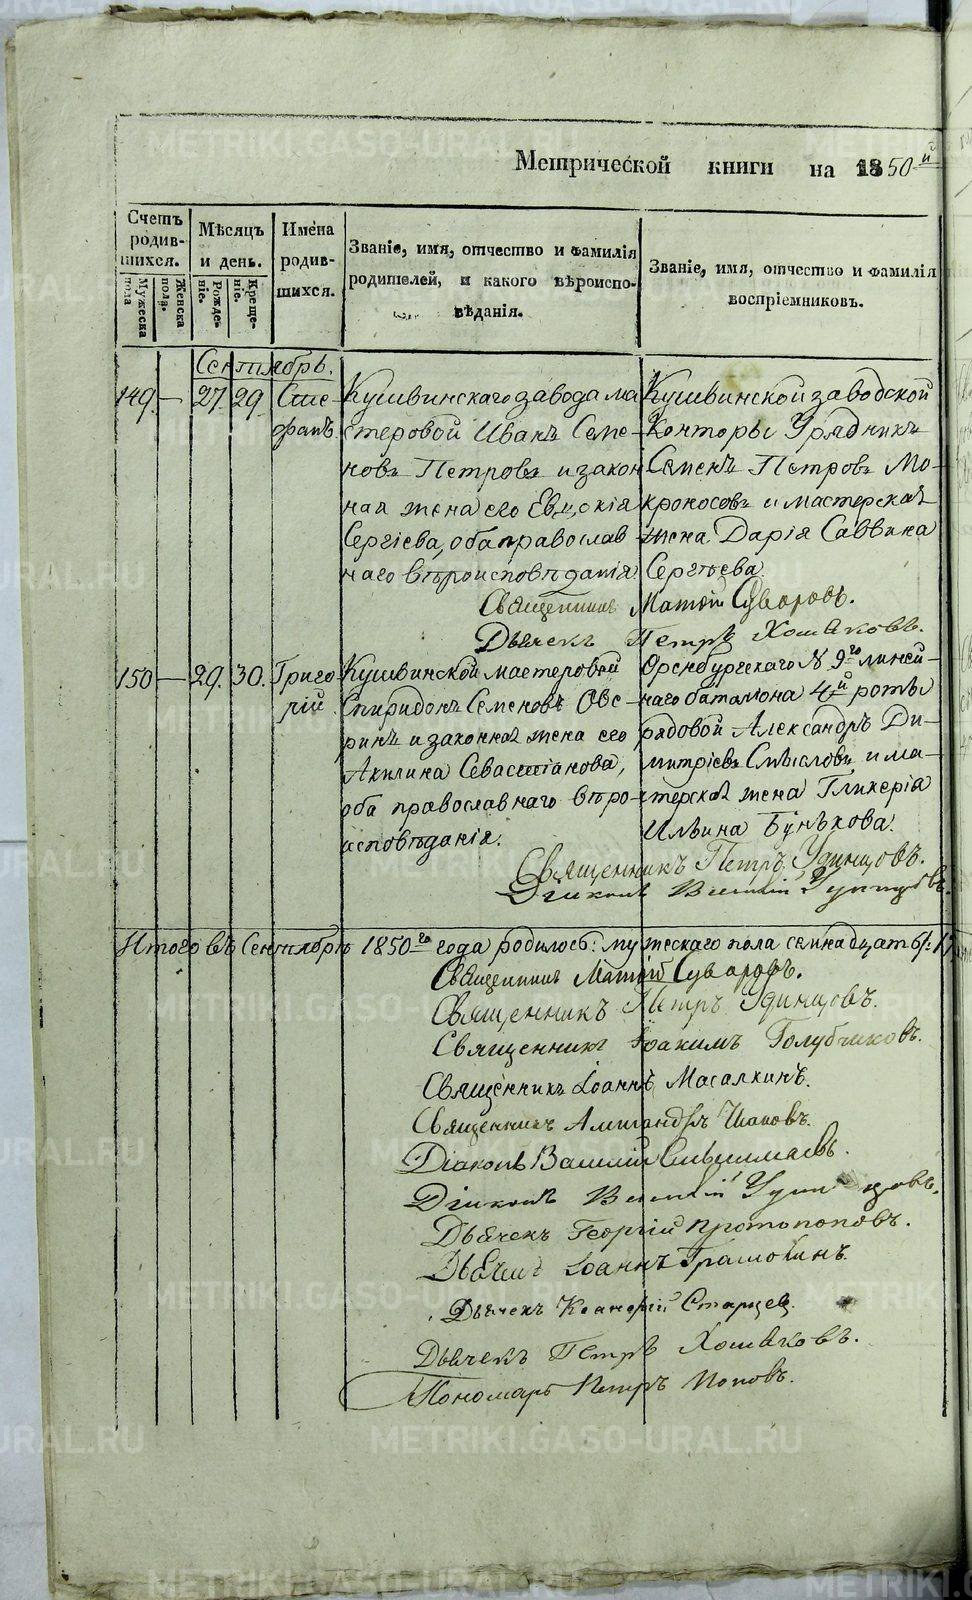 Метрической книги на 1850-й
Счетъ родив-шихся.
Мужеска пола
Женска пола.
Мѣсяцъ и день.
Рожде-ніе.
Креще-ніе.
Имена родив-шихся.
Званіе, имя, отчество и фамилія
родителей, и какого вѣроиспо-
вѣданія.
Званіе, имя, отчество и фамилія
воспріемниковъ.
Сентябрь.
149. — 27. 29. Сте-
фанъ
Кушвинскаго завода ма
стеровой Иванъ Семе-
новъ Петровъ и закон
ная жена его Евдокія
Сергіева, оба православ
наго вѣроисповѣданія.
Кушвинской заводской
Конторы Урядникъ
Семенъ Петровъ Мо-
кроносовъ и мастерская
жена Дарія Саввина
Сергѣева.
Священникъ Матѳій Суворовъ.
Дьячекъ Петръ Хомяковъ.
150 — 29. 30. Григо
рій
Кушвинской мастеровой
Спиридонъ Семеновъ Овс-
ринъ и законная жена его
Акилина Севастіанова,
оба православнаго вѣро-
исповѣданія.
Оренбургскаго № 9го линей-
наго баталіона 4й роты
рядовой Александръ Ди-
митріевъ Смысловъ и ма-
стерская жена Гликерія
Ильина Бунькова.
Священникъ Петръ Удинцовъ.
Діаконъ Василій Удинцовъ.
Итого въ Сентябрѣ 1850го года родилось: мужескаго пола семнадцать 17
Священникъ Матѳій Суворовъ.
Священникъ Петръ Удинцовъ.
Священникъ Іоакимъ Голубчиковъ.
Священникъ Іоаннъ Масалкинъ.
Священникъ Александръ
Діаконъ Василій
Діаконъ Василій Удинцовъ.
Дьячекъ Георгій Протопоповъ.
Дьячекъ Іоаннъ Грамолинъ
Дьячекъ Старцев.
Дьячекъ Петръ Хомяковъ.
Пономарь Петръ Поповъ.
METRIKI.GASO-URAL.RU